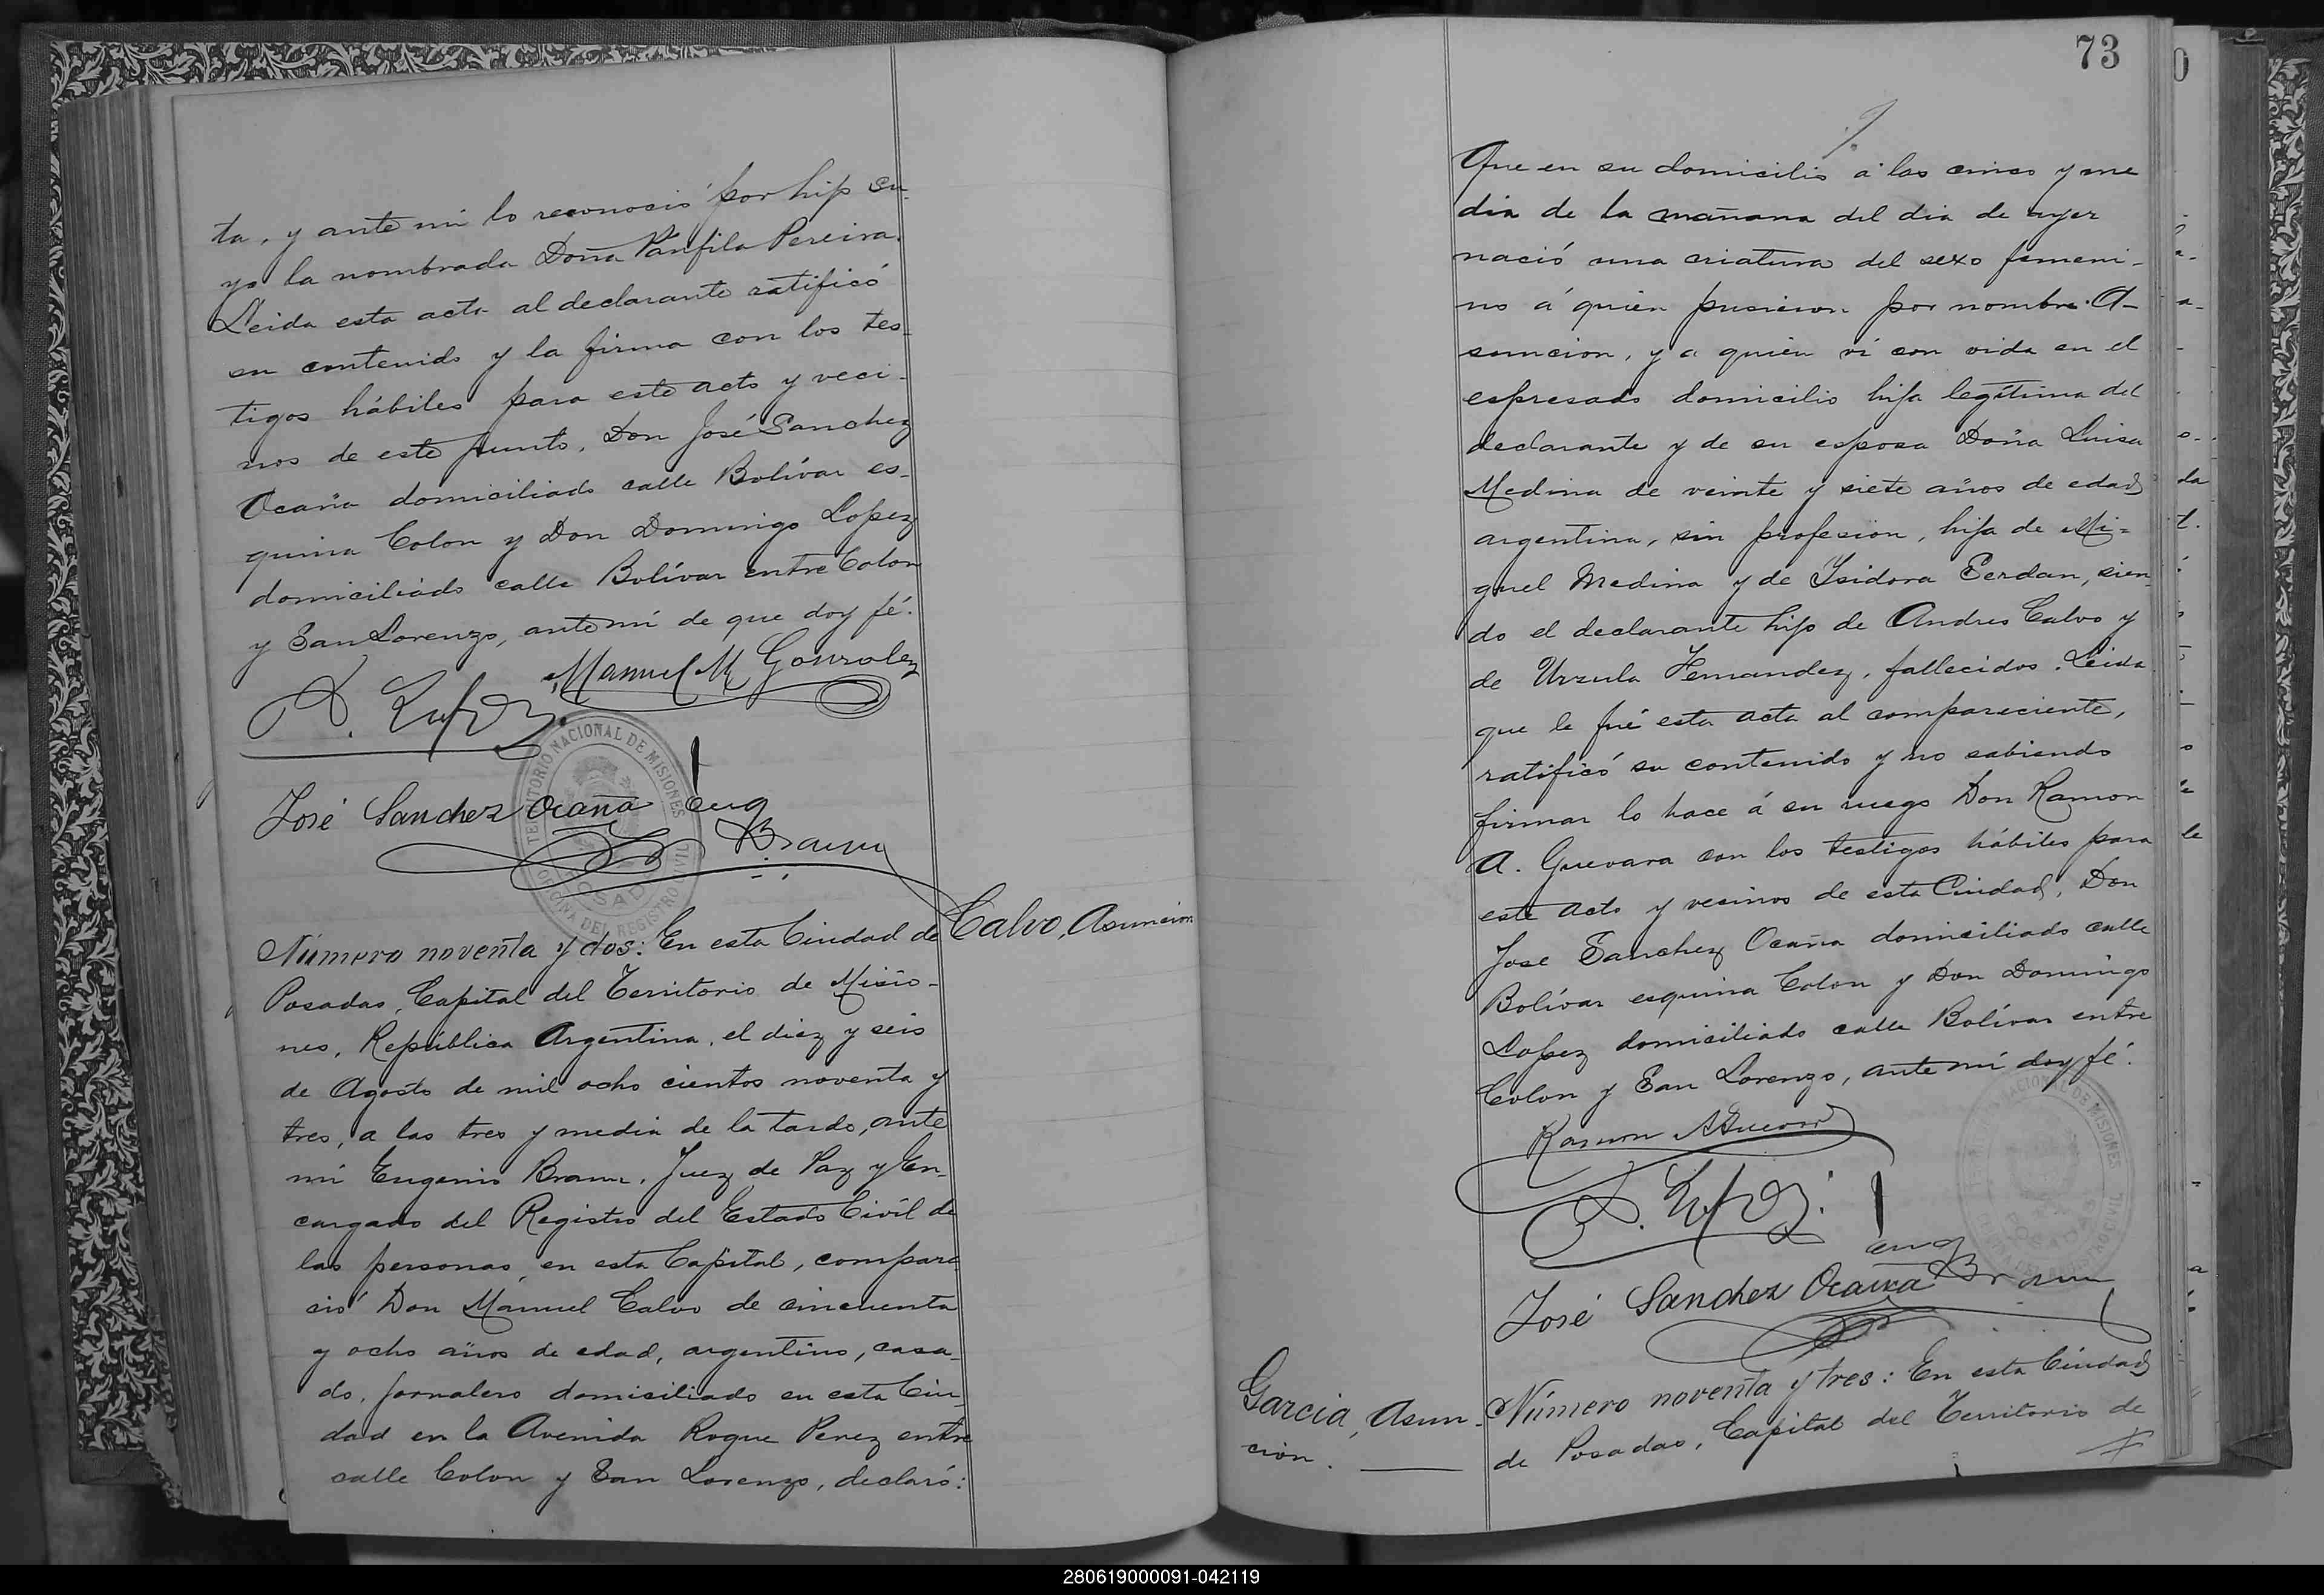 ta, y ante mi lo reconoció por hijo su-
yo la nombrada Doña Pánfila Pereira.
Leida esta acta al declarante ratificó
su contenido y la firma con los tes-
tigos hábiles para este acto y veci-
nos de este punto, Don José Sanchez
Ocaña domiciliado calle Bolívar es-
quina Colon y Don Domingo Lopez
domiciliado calle Bolívar entre Colon
y San Lorenzo, ante mí de que doy fé.
Manuel M Gonzalez
D. Lopez
TERRITORIO NACIONAL DE MISIONES
OFICINA DEL REGISTRO CIVIL
POSADAS
José Sanchez Ocaña
Eug
Braun
Calvo, Asuncion
Número noventa y dos: En esta Ciudad de
Posadas, Capital del Territorio de Misio-
nes, República Argentina, el diez y seis
de Agosto de mil ocho cientos noventa y
tres, a las tres y media de la tarde, ante
mí Eugenio Braun, Juez de Paz y En-
cargado del Registro del Estado Civíl de
las personas, en esta Capital, compare
ció Don Manuel Calvo de cincuenta
y ocho años de edad, argentino, casa-
do, jornalero domiciliado en esta Ciu-
dad en la Avenida Roque Perez entre
calle Colon y San Lorenzo, declaró:
73
Que en su domicilio á las cinco y me
dia de la mañana del dia de ayer
nació una criatura del sexo femeni-
no á quien pusieron por nombre A-
suncion, y a quien ví con vida en el
espresado domicilio hija legítima del
declarante y de su esposa Doña Luisa
Medina de veinte y siete años de edad
argentina, sin profesion, hija de Mi-
guel Medina y de Isidora Cerdan, sien-
do el declarante hijo de Andres Calvo y
de Urzula Fernandez, fallecidos. Leida
que le fué esta acta al compareciente,
ratificó su contenido y no sabiendo
firmar lo hace á su ruego Don Ramon
A. Guevara con los testigos hábiles para
este acto y vecinos de esta Ciudad, Don
Jose Sanchez Ocaña domiciliado calle
Bolívar esquina Colon y Don Domingo
Lopez domiciliado calle Bolívar entre
Colon y San Lorenzo, ante mí doy fé.
Ramon A Guevara
D. Lopez
NACIONAL DE MISIONES
POSADAS
Eug
Braun
José Sanchez Ocaña
Garcia, Asun-
cion.
Número noventa y tres: En esta Ciudad
de Posadas, Capital del Territorio de
280619000091-042119